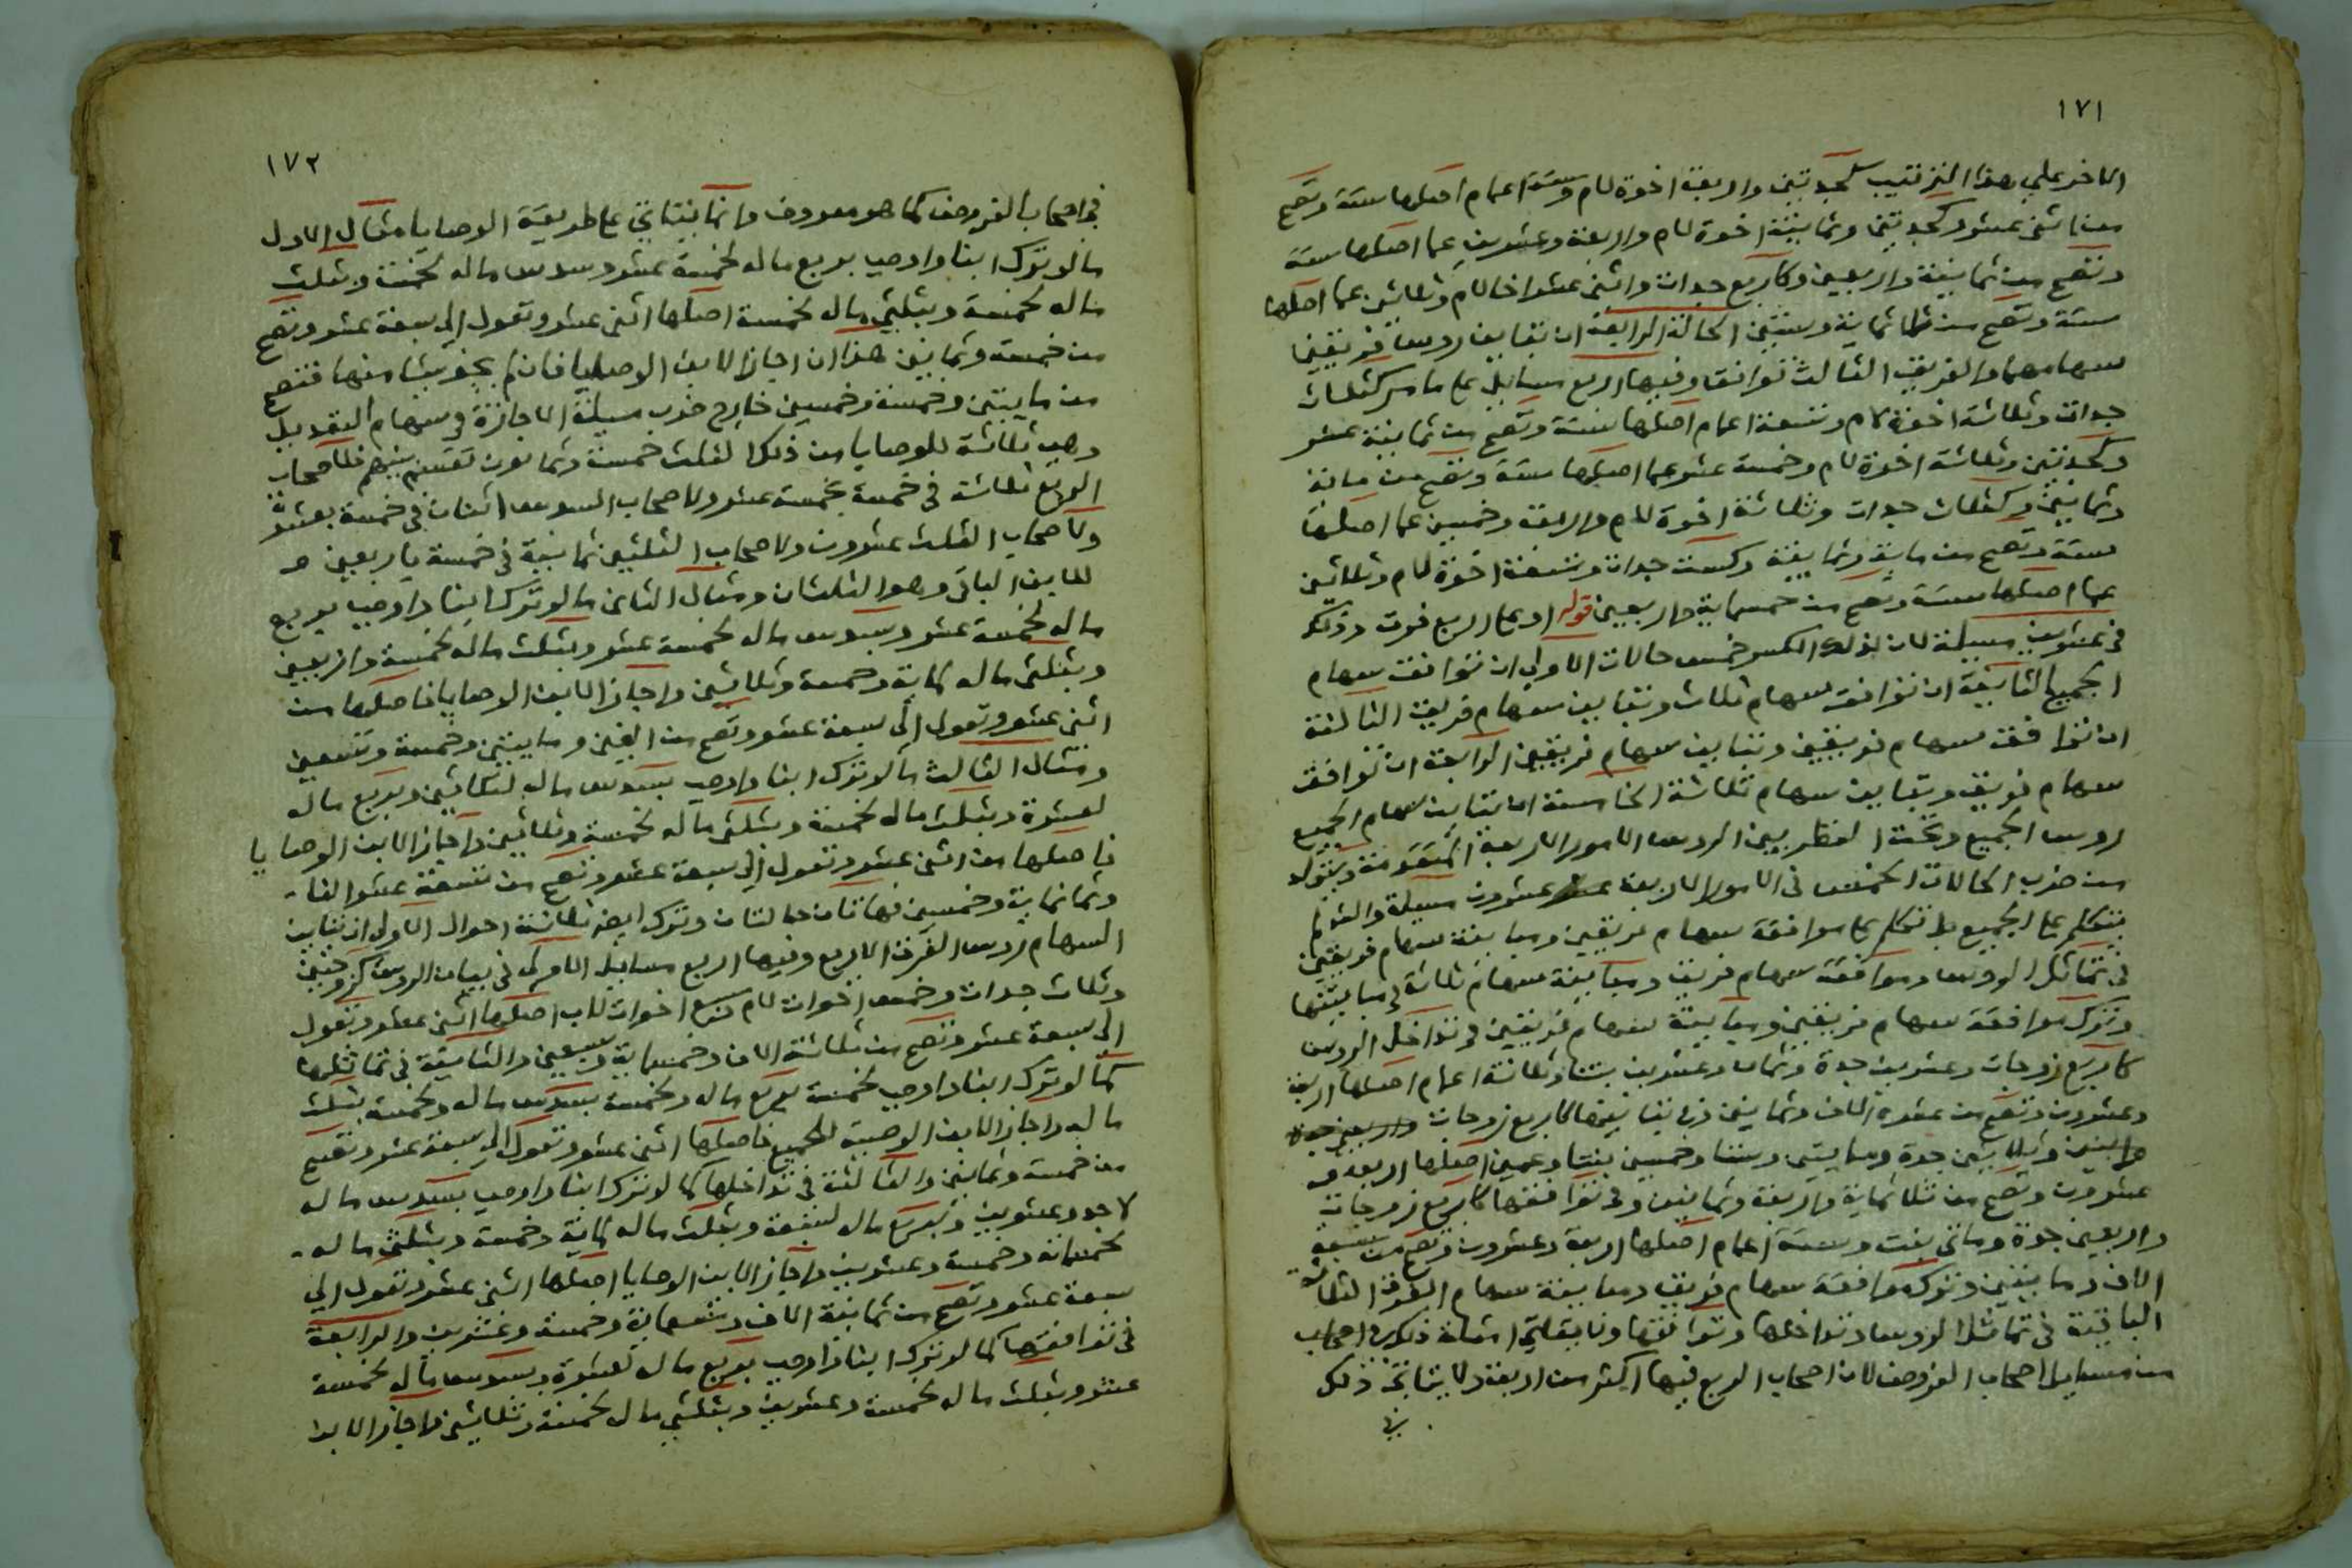 ١٧١
الاخر علي هذا الترتيب كجدتين واربعة اخوة لام وستة اعمام اصلها ستة وتصح
من اثني عشر وكجدتين وثمانية اخوة لام واربعة وعشرين عما اصلها ستة
وتصح من ثمانية واربعين وكاربع جدات واثني عشر اخا لام وثلاثين عما اصلها
ستة وتصح من ثلاثماية وستين الحالة الرابعة ان تباين روس فريقين
سهامهما والفريق الثالث توافق وفيها اربع مسايل علي ما مر كثلاث
جدات وثلاثة اخوة لام وتسعة اعمام اصلها ستة وتصح من ثمانية عشر
وكجدتين وثلاثة اخوة لام وخمسة عشر عما اصلها ستة وتصح من ماية
وثمانين وكثلاث جدات وثلاثة اخوة لام واربعة وخمسين عما اصلها
ستة وتصح من ماية وثمانية وكست جدات وتسعة اخوة لام وثلاثين
عما اصلها ستة وتصح من خمسماية واربعين قوله او علي اربع فرق وذلك
في عشرين مسيلة لان لذلك الكسر خمس حالات الاولي ان توافق سهام
الجميع الثانية ان توافق سهام ثلاث وتباين سهام فريق الثالثة
ان توافق سهام فريقين وتباين سهام فريقين الرابعة ان توافق
سهام فريق وتباين سهام ثلاثة الخامسة ان تباين سهام الجميع
روس الجميع وتحت النظر بين الروس الامور الاربعة المتقدمة ويتولد
من ضرب الحالات الخمس في الامور الاربعة عشرون مسيلة والشم لم
يتكلم علي الجميع بل تكلم علي موافقة سهام فريقين ومباينة سهام فريقين
في تماثل الروس وموافقة سهام فريق ومباينة سهام ثلاثة في مباينتها
وترك موافقة سهام فريقين ومباينة سهام فريقين في تداخل الروس
كاربع زوجات وعشرين جدة وثمان وعشرين بنتا وثلاثة اعمام اصلها اربعة
وعشرون وتصح من عشرة الاف وثمانين وفي تباينها كاربع زوجات
واثنين وثلاثين جدة ومايتين وستا وخمسين بنتا وعمين اصلها اربعة و
عشرون وتصح من ثلاثماية واربعة وثمانين وفي توافقها كاربع زوجات
واربعين جدة وماتي بنت وستة اعمام اصلها اربعة وعشرون وتصح من سبعة
الاف ومايتين وترك موافقة سهام فريق ومباينة سهام الفرق الثلاثة
الباقية في تماثل الروس وتداخلها وتوافقها امثلة ذلك في اصحاب
من مسايل اصحاب الفروض لان اصحاب الربع فيها اكثر من اربعة ولا يتاتي ذلك
في
١٧٢
في اصحاب الفروض كما هو معروف وانما يتاتي علي طريقة الوصايا مثال الاول
ما لو ترك ابنا واوصي بربع ماله لخمسة عشر وسدس ماله لخمسة وثلث
ماله لخمسة وبثلثي ماله لخمسة اصلها اثني عشر وتعول الي سبعة عشر وتصح
من خمسة وثمانين هذا ان اجاز الابن الوصايا فان لم يجز شيا منها فتصح
من مايتين وخمسة وخمسين خارج ضرب مسيلة الاجازة في سهام التعديل
وهي ثلاثة للوصايا من ذلك الثلث خمسة وثمانون تقسم بينهم فلاصحاب
الربع ثلاثة في خمسة بخمسة عشر ولاصحاب السدس اثنان في خمسة بعشرة
ولاصحاب الثلث عشرون ولاصحاب الثلثين ثمانية في خمسة باربعين و
للابن الباقي وهو الثلثان ومثال الثاني ما لو ترك ابنا واوصي بربع
ماله لخمسة عشر وبسدس ماله لخمسة عشر وبثلث ماله لخمسة واربعين
وبثلثي ماله لماية وخمسة وثلاثين واجاز الابن الوصايا فاصلها من
اثني عشر وتعول الي سبعة عشر وتصح من الفين ومايتين وخمسة وتسعين
ومثال الثالث ما لو ترك ابنا واوصي بسدس ماله لثلاثين وبربع ماله
لعشرة وبثلث ماله لخمسة وبثلثي ماله لخمسة وثلاثين واجاز الابن الوصايا
فاصلها من اثني عشر وتعول الي سبعة عشر وتصح من تسعة عشر الفا
وثمانماية وخمسين فهاتان حالتان وترك ايضا ثلاثة احوال الاولي ان تباين
السهام روس الفرق الاربع وفيها اربع مسايل الاولي في تباين الروس كزوجتين
وثلاث جدات وخمس اخوات لام وسبع اخوات لاب اصلها اثني عشر وتعول
الي سبعة عشر وتصح من ثلاثة الاف وخمسماية وسبعين والثانية في تماثلها
كما لو ترك ابنا واوصي لخمسة بربع ماله ولخمسة بسدس ماله ولخمسة بثلث
ماله واجاز الابن الوصية للجميع فاصلها اثني عشر وتعول الي سبعة عشر وتصح
من خمسة وثمانين والثالثة في تداخلها كما لو ترك ابنا واوصي بسدس ماله
لاحد وعشرين وبربع ماله لسبعة وبثلث ماله لماية وخمسة وبثلثي ماله
لخمسماية وخمسة وعشرين واجاز الابن الوصايا اصلها اثني عشر وتعول الي
سبعة عشر وتصح من ثمانية الاف وتسعماية وخمسة وعشرين والرابعة
في توافقها كما لو ترك ابنا واوصي بربع ماله لعشرة وبسدس ماله لخمسة
عشر وبثلث ماله لخمسة وعشرين وبثلثي ماله لخمسة وثلاثين واجاز الابن